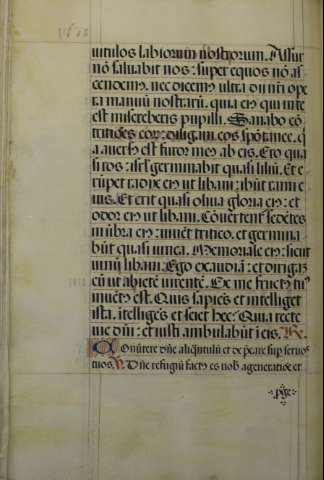 uitulos labiorum nostrorum. Assur
nō saluabit nos: super equos nō as
cendem̄. nec dicem̄ ultra dii nr̄i ope
ra manuū nostrarū. quia eīꝯ qui in te
est misereberis pupilli. Sanabo cō
tritiōes eoꝝ: diligam eos spōtanee. q̄
a auersꝯ est furor meꝯ ab eis. Ero qua
si ros: isrl̄ germinabit quasi liliū. Et e
rūpet radix eiꝯ ut libani: ibūt rami e
ius. Et erit quasi oliua gloria eiꝯ: et
odor eiꝯ ut libani. Cōuertent̄ sedētes
ī ūbra eiꝯ: uiuēt tritico. et germina
būt quasi uinea. Memoriale eiꝯ: sicut
uinū libani. Ego exaudiā: et dirigā
eū ut abietē uirentē. Ex me fructꝯ tuꝯ
inuētꝯ est. Quis sapiēs et intelliget
ista. ītelligēs et sciet hec: Quia recte
uie dn̄i: et iusti ambulabūt ī eis. ℟.
Conūtere dn̄e aliq̄ntulū et dep̄care sup̄ seruos
tuos. ℣. Dn̄e refugiū factꝯ es nob̄ a generatiōe et
p̄ge